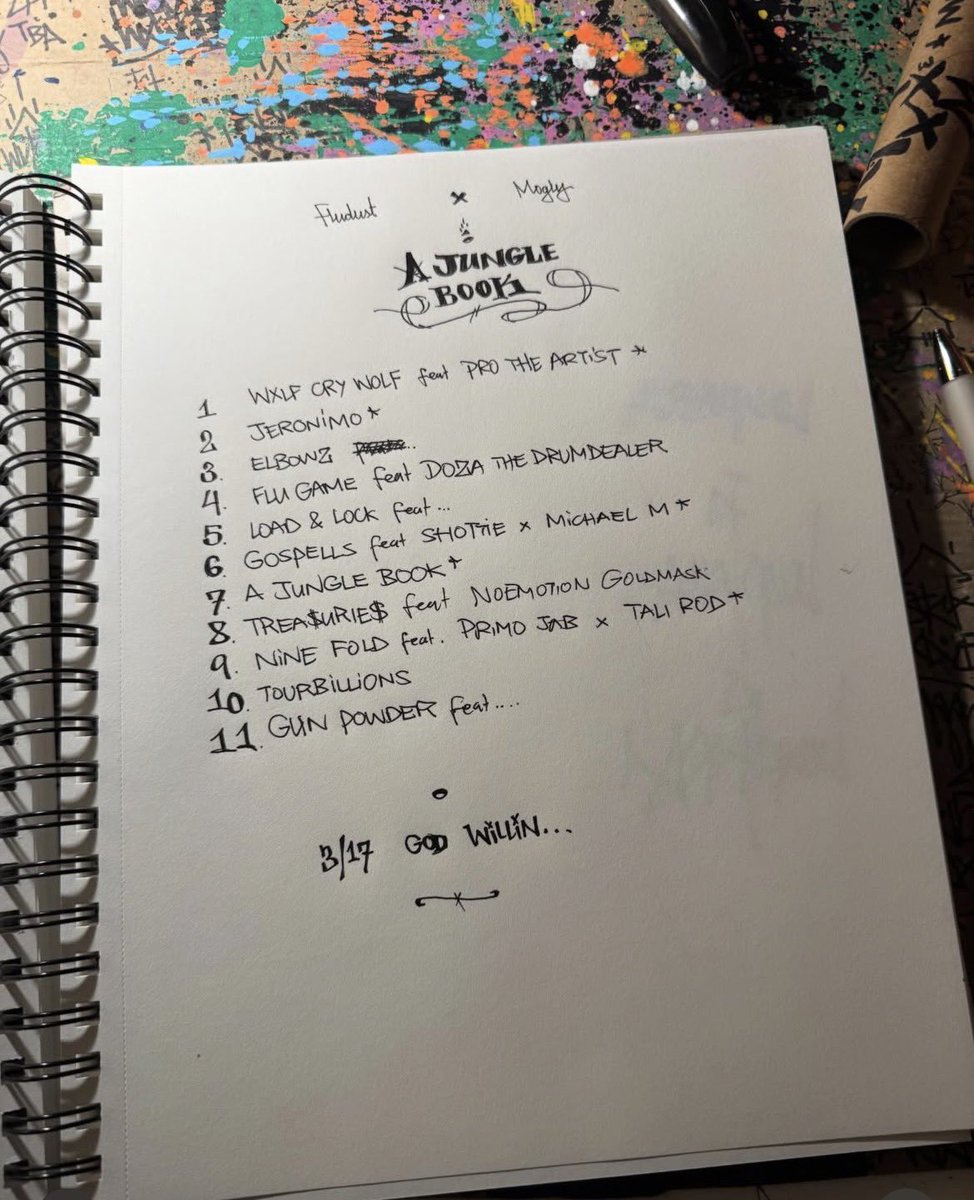 TBA
Fludust x Mogly
A JUNGLE
BOOK
1 WXLF CRY WOLF feat PRO THE ARTIST *
2 JERONIMO *
3. ELBOWZ ...
4. FLU GAME feat DOZA THE DRUMDEALER
5. LOAD & LOCK feat...
6. GOSPELLS feat SHOTTIE x MICHAEL M *
7. A JUNGLE BOOK *
8. TREA$URIE$ feat NOEMOTION GOLDMASK
9. NINE FOLD feat. PRIMO JAB x TALI ROD *
10. TOURBILLIONS
11. GUN POWDER feat....
3/17 GOD WILLIN...